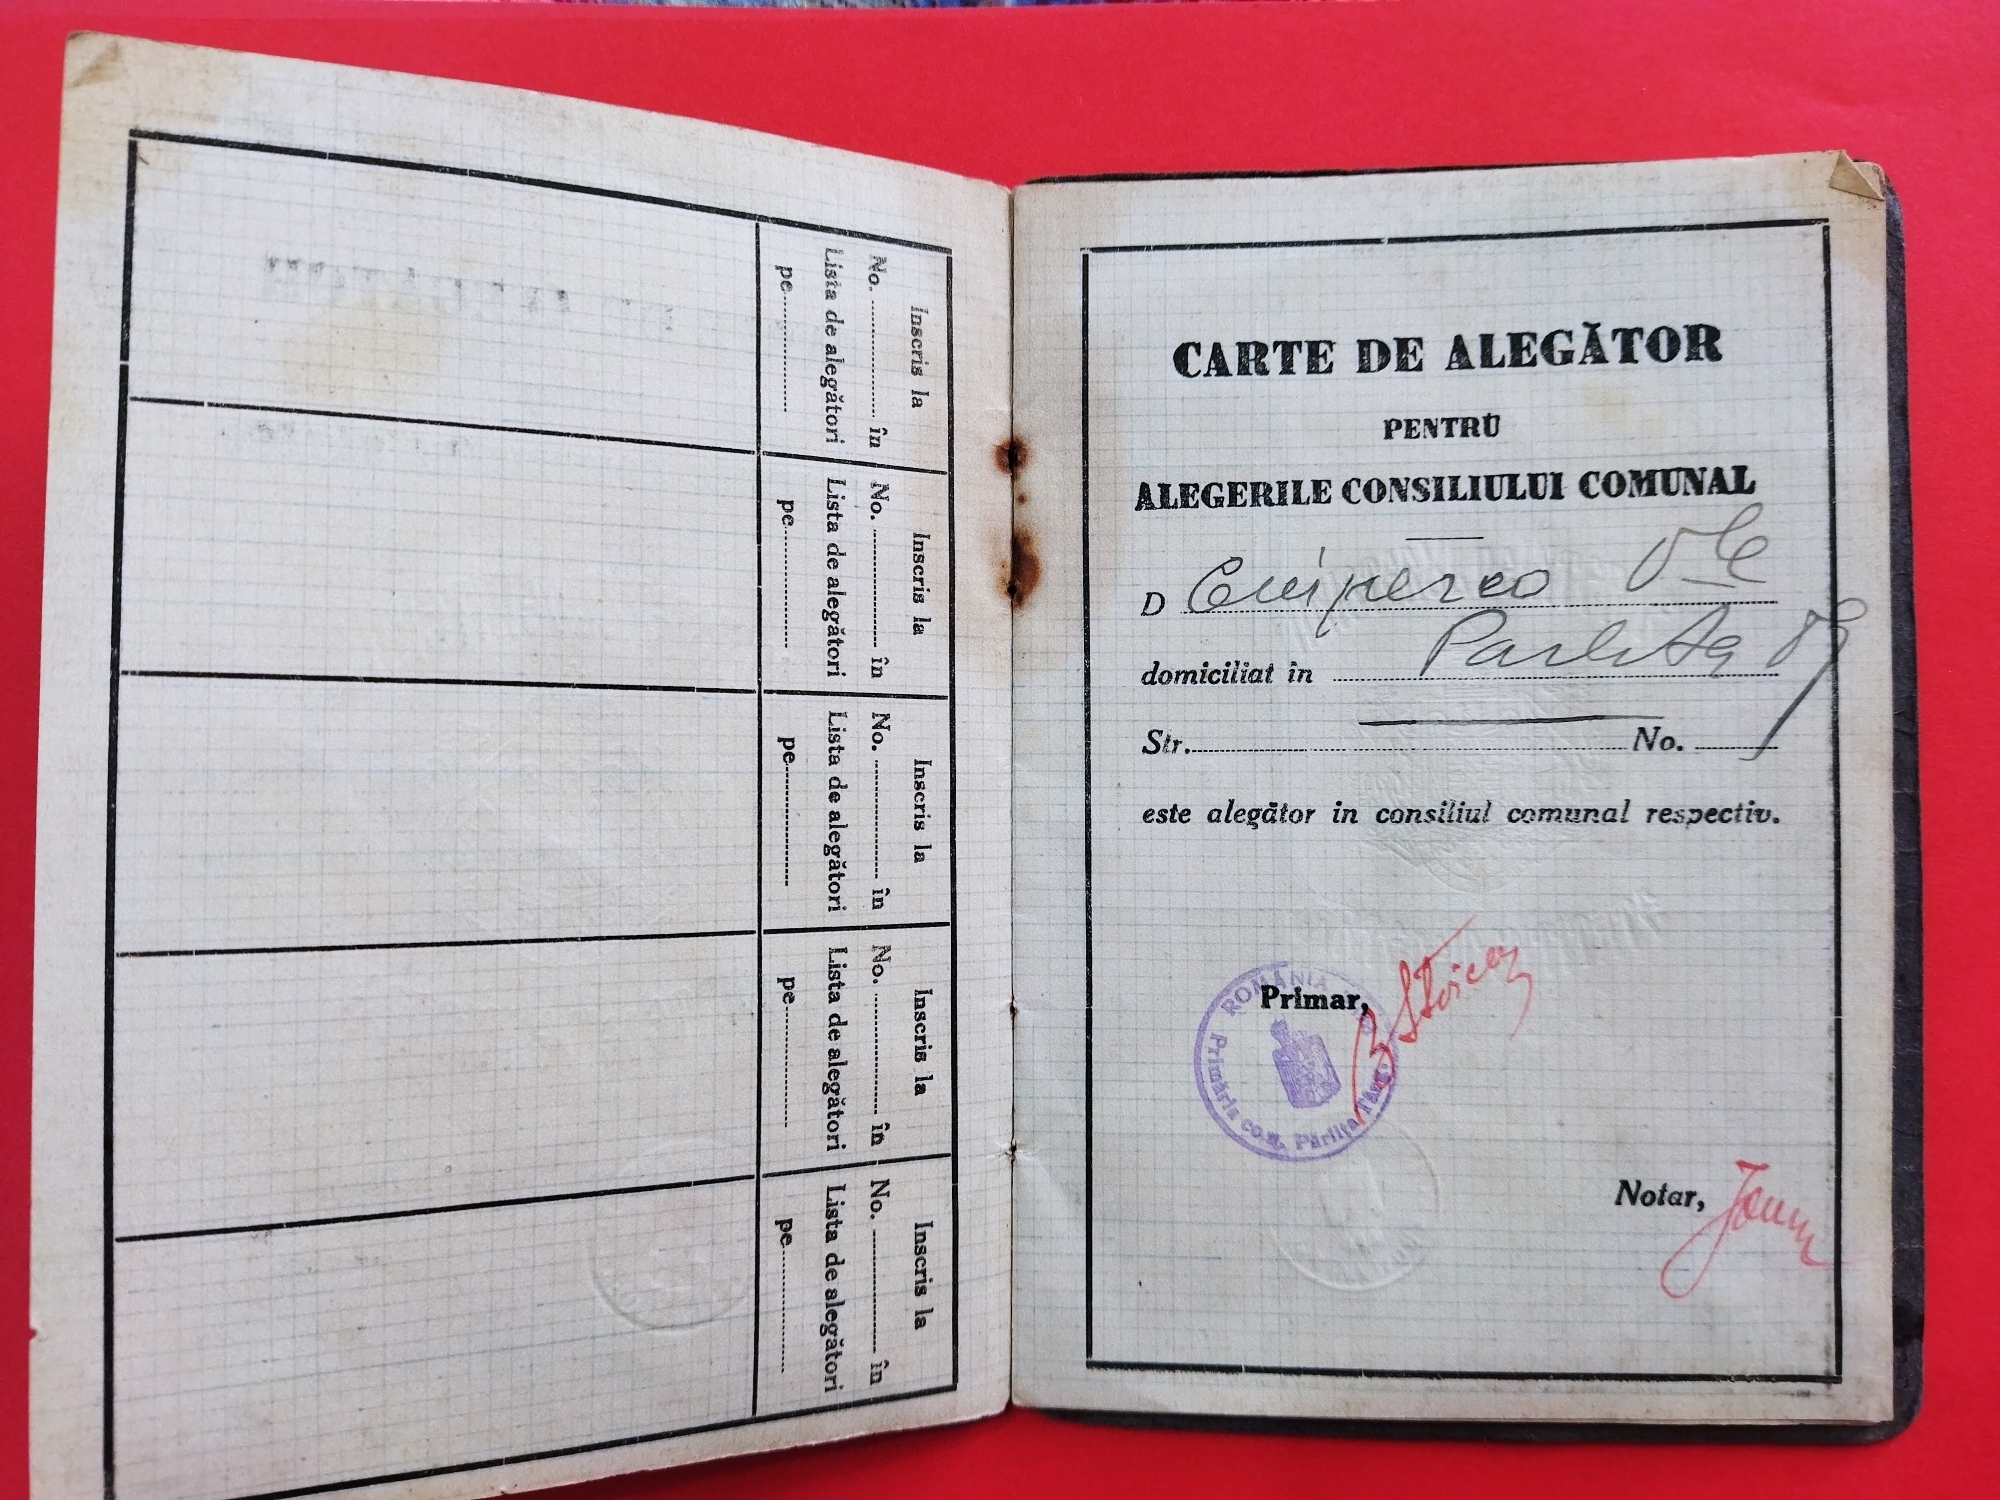 Inscris la
No. în
Lista de alegători
pe
Inscris la
No. în
Lista de alegători
pe
Inscris la
No. în
Lista de alegători
pe
Inscris la
No. în
Lista de alegători
pe
Inscris la
No. în
Lista de alegători
pe
CARTE DE ALEGĂTOR
PENTRU
ALEGERILE CONSILIULUI COMUNAL
D
domiciliat în
Str. No.
este alegător in consiliul comunal respectiv.
Primar,
ROMANIA
Primăria com. Părlița
Notar,